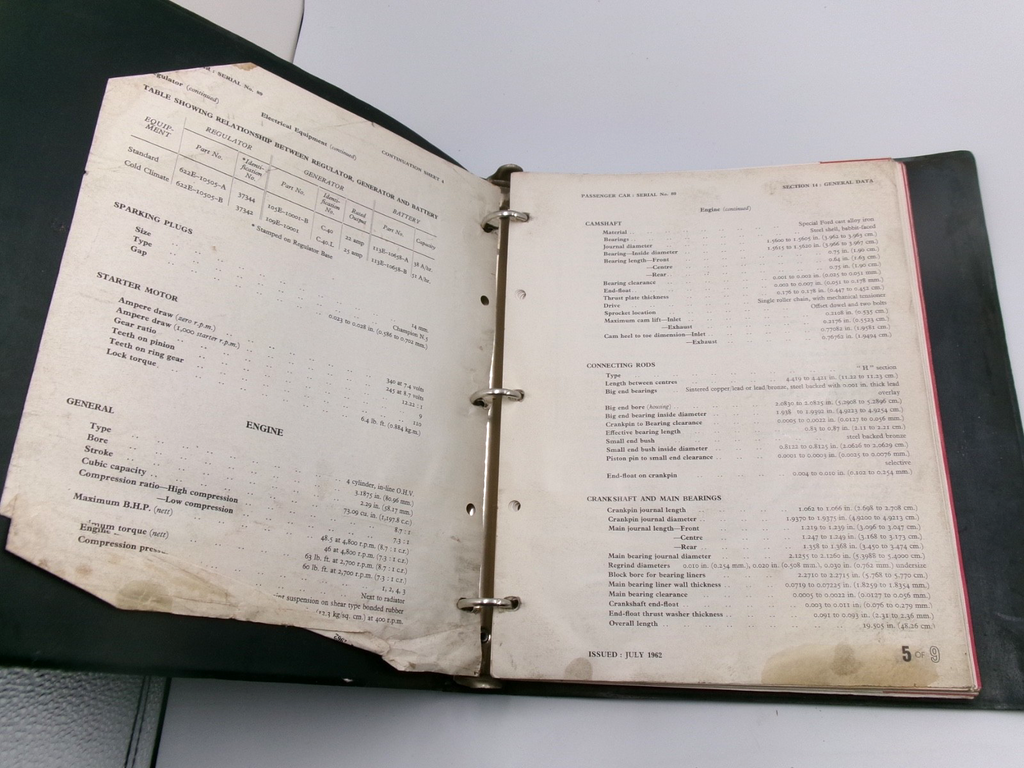 : SERIAL No. 88
gulator (continued)
Electrical Equipment (continued)
CONTINUATION SHEET 4
TABLE SHOWING RELATIONSHIP BETWEEN REGULATOR, GENERATOR AND BATTERY
EQUIP-MENT REGULATOR GENERATOR BATTERY
Part No. *Identi-fication No. Part No. Identi-fication No. Rated Output Part No. Capacity
Standard 622E-10505-A 37344 105E-10001-B C.40 22 amp 113E-10658-A 38 A/hr.
Cold Climate 622E-10505-B 37342 109E-10001 C.40 L 25 amp 113E-10658-B 51 A/hr.
* Stamped on Regulator Base
SPARKING PLUGS
Size .. 14 mm.
Type .. Champion N.5
Gap .. 0.023 to 0.028 in. (0.586 to 0.702 mm.)
STARTER MOTOR
Ampere draw (zero r.p.m.) .. 340 at 7.4 volts
Ampere draw (1,000 starter r.p.m.) .. 245 at 8.7 volts
Gear ratio .. 12.22 : 1
Teeth on pinion .. 9
Teeth on ring gear .. 110
Lock torque .. 6.4 lb. ft. (0.884 kg.m.)
ENGINE
GENERAL
Type .. 4 cylinder, in-line O.H.V.
Bore .. 3.1875 in. (80.96 mm.)
Stroke .. 2.29 in. (58.17 mm.)
Cubic capacity .. 73.09 cu. in. (1,197.8 c.c.)
Compression ratio—High compression .. 8.7 : 1
—Low compression .. 7.3 : 1
Maximum B.H.P. (nett) .. 48.5 at 4,800 r.p.m. (8.7 : 1 c.r.)
46 at 4,800 r.p.m. (7.3 : 1 c.r.)
mum torque (nett) .. 63 lb. ft. at 2,700 r.p.m. (8.7 : 1 c.r.)
60 lb. ft. at 2,700 r.p.m. (7.3 : 1 c.r.)
1, 2, 4, 3
Next to radiator
Engine suspension on shear type bonded rubber
Compression pres kg/sq. cm.) at 400 r.p.m.
PASSENGER CAR : SERIAL No. 88
SECTION 11 : GENERAL DATA
Engine (continued)
CAMSHAFT
Material .. Special Ford cast alloy iron
Bearings .. Steel shell, babbit faced
Journal diameter .. 1.5600 to 1.5605 in. (3.962 to 3.963 cm.)
Bearing—Inside diameter .. 1.5615 to 1.5620 in. (3.966 to 3.967 cm.)
Bearing length—Front .. 0.75 in. (1.90 cm.)
—Centre .. 0.64 in. (1.63 cm.)
—Rear .. 0.75 in. (1.90 cm.)
Bearing clearance .. 0.001 to 0.002 in. (0.025 to 0.051 mm.)
End-float .. 0.002 to 0.007 in. (0.051 to 0.178 mm.)
Thrust plate thickness .. 0.176 to 0.178 in. (0.447 to 0.452 cm.)
Drive .. Single roller chain, with mechanical tensioner
Sprocket location .. Offset dowel and two bolts
Maximum cam lift—Inlet .. 0.2108 in. (0.535 cm.)
—Exhaust .. 0.2176 in. (0.5523 cm.)
Cam heel to toe dimension—Inlet .. 0.77082 in. (1.9581 cm.)
—Exhaust .. 0.76762 in. (1.9494 cm.)
CONNECTING RODS
Type .. "H" section
Length between centres .. 4.419 to 4.421 in. (11.22 to 11.23 cm.)
Big end bearings Sintered copper/lead or lead/bronze, steel backed with 0.001 in. thick lead
overlay
Big end bore (housing) .. 2.0830 to 2.0825 in. (5.2908 to 5.2896 cm.)
Big end bearing inside diameter .. (4.9223 to 4.9254 cm.)
Crankpin to Bearing clearance .. 0.0005 to 0.0022 in. (0.0127 to 0.056 mm.)
Effective bearing length .. 0.83 to 0.87 in. (2.11 to 2.21 cm.)
Small end bush .. steel backed bronze
Small end bush inside diameter .. 0.8122 to 0.8125 in. (2.0626 to 2.0629 cm.)
Piston pin to small end clearance .. 0.0001 to 0.0003 in. (0.0025 to 0.0076 mm.)
selective
End-float on crankpin 0.004 to 0.010 in. (0.102 to 0.254 mm.)
CRANKSHAFT AND MAIN BEARINGS
Crankpin journal length .. 1.062 to 1.066 in. (2.698 to 2.708 cm.)
Crankpin journal diameter .. 1.9370 to 1.9375 in. (4.9200 to 4.9213 cm.)
Main journal length—Front .. 1.219 to 1.239 in. (3.096 to 3.047 cm.)
—Centre .. 1.247 to 1.249 in. (3.168 to 3.173 cm.)
—Rear .. 1.358 to 1.368 in. (3.450 to 3.474 cm.)
Main bearing journal diameter .. 2.1255 to 2.1260 in. (5.3988 to 5.4000 cm.)
Regrind diameters 0.010 in. (0.254 mm.), 0.020 in. (0.508 mm.), 0.030 in. (0.762 mm.) undersize
Block bore for bearing liners .. 2.2710 to 2.2715 in. (5.768 to 5.770 cm.)
Main bearing liner wall thickness .. 0.0719 to 0.07225 in. (1.8259 to 1.8354 mm.)
Main bearing clearance .. 0.0005 to 0.0022 in. (0.0127 to 0.056 mm.)
Crankshaft end-float .. 0.003 to 0.011 in. (0.076 to 0.279 mm.)
End-float thrust washer thickness .. 0.091 to 0.093 in. (2.31 to 2.36 mm.)
Overall length .. 19.505 in. (48.26 cm.)
ISSUED : JULY 1962
5 OF 9